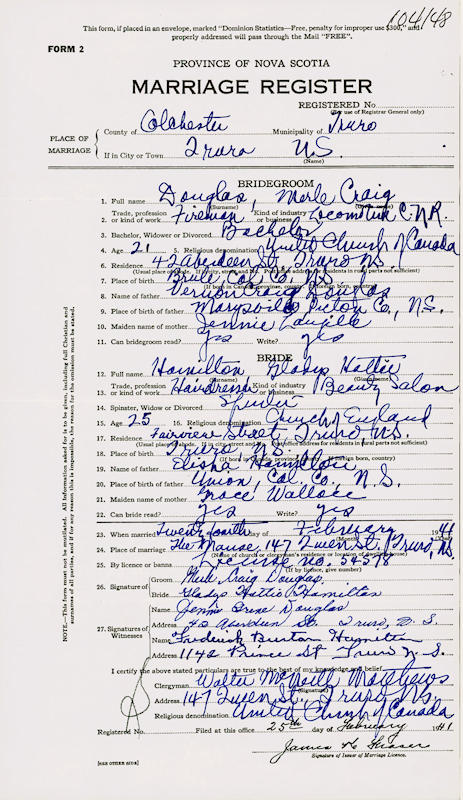 104148
This form, if placed in an envelope, marked "Dominion Statistics—Free, penalty for improper use $300," and
properly addressed will pass through the Mail "FREE".
FORM 2
PROVINCE OF NOVA SCOTIA
MARRIAGE REGISTER
REGISTERED No.
(For use of Registrar General only)
PLACE OF MARRIAGE
County of Colchester Municipality of Truro
If in City or Town Truro N.S.
(Name)
BRIDEGROOM
1. Full name Douglas, Merle Craig
(Surname) (Given name)
2. Trade, profession or kind of work Fireman Kind of industry or business Locomotive C.N.R.
3. Bachelor, Widower or Divorced Bachelor
4. Age 21 5. Religious denomination United Church of Canada
6. Residence 42 Aberdeen St. Truro N.S.
7. Place of birth Col. Co. N.S.
8. Name of father Vernon Craig Douglas
9. Place of birth of father Pictou Co., N.S.
10. Maiden name of mother Jennie
11. Can bridegroom read? yes Write? yes
BRIDE
12. Full name Hamilton Gladys Hattie
(Surname) (Given name)
13. Trade, profession or kind of work Hairdresser Kind of industry or business Beauty Salon
14. Spinster, Widow or Divorced Spinster
15. Age 25 16. Religious denomination Church of England
17. Residence Fairview Street, Truro, N.S.
18. Place of birth Truro, N.S.
19. Name of father Elisha Hamilton
20. Place of birth of father Union, Col. Co., N.S.
21. Maiden name of mother Grace Wallace
22. Can bride read? yes Write? yes
23. When married Twenty fourth day of February 1941
(Month)
24. Place of marriage The Manse, 147 Queen St., Truro, N.S.
(Name of church or clergyman's residence or location of)
25. By licence or banns License no. 54578
(If by licence, give number)
26. Signature of
Groom Merle Craig Douglas
Bride Gladys Hattie Hamilton
27. Signature of Witnesses
Name Douglas
Address St. Truro, N.S.
Name Frederick Burton Hamilton
Address Prince St Truro N.S.
I certify the above stated particulars are true to the best of my knowledge and belief.
Clergyman Walter McNeill Matthews
(Signature)
Address 147 Queen St., Truro N.S.
Religious denomination United Church of Canada
Registered No. Filed at this office 25th day of February 1941
James
Signature of Issuer of Marriage Licence.
[SEE OTHER SIDE]
NOTE.—This form must not be mutilated. All information asked for is to be given, including full Christian and
surnames of all parties, and if for any reason this is impossible, the reason for the omission must be stated.